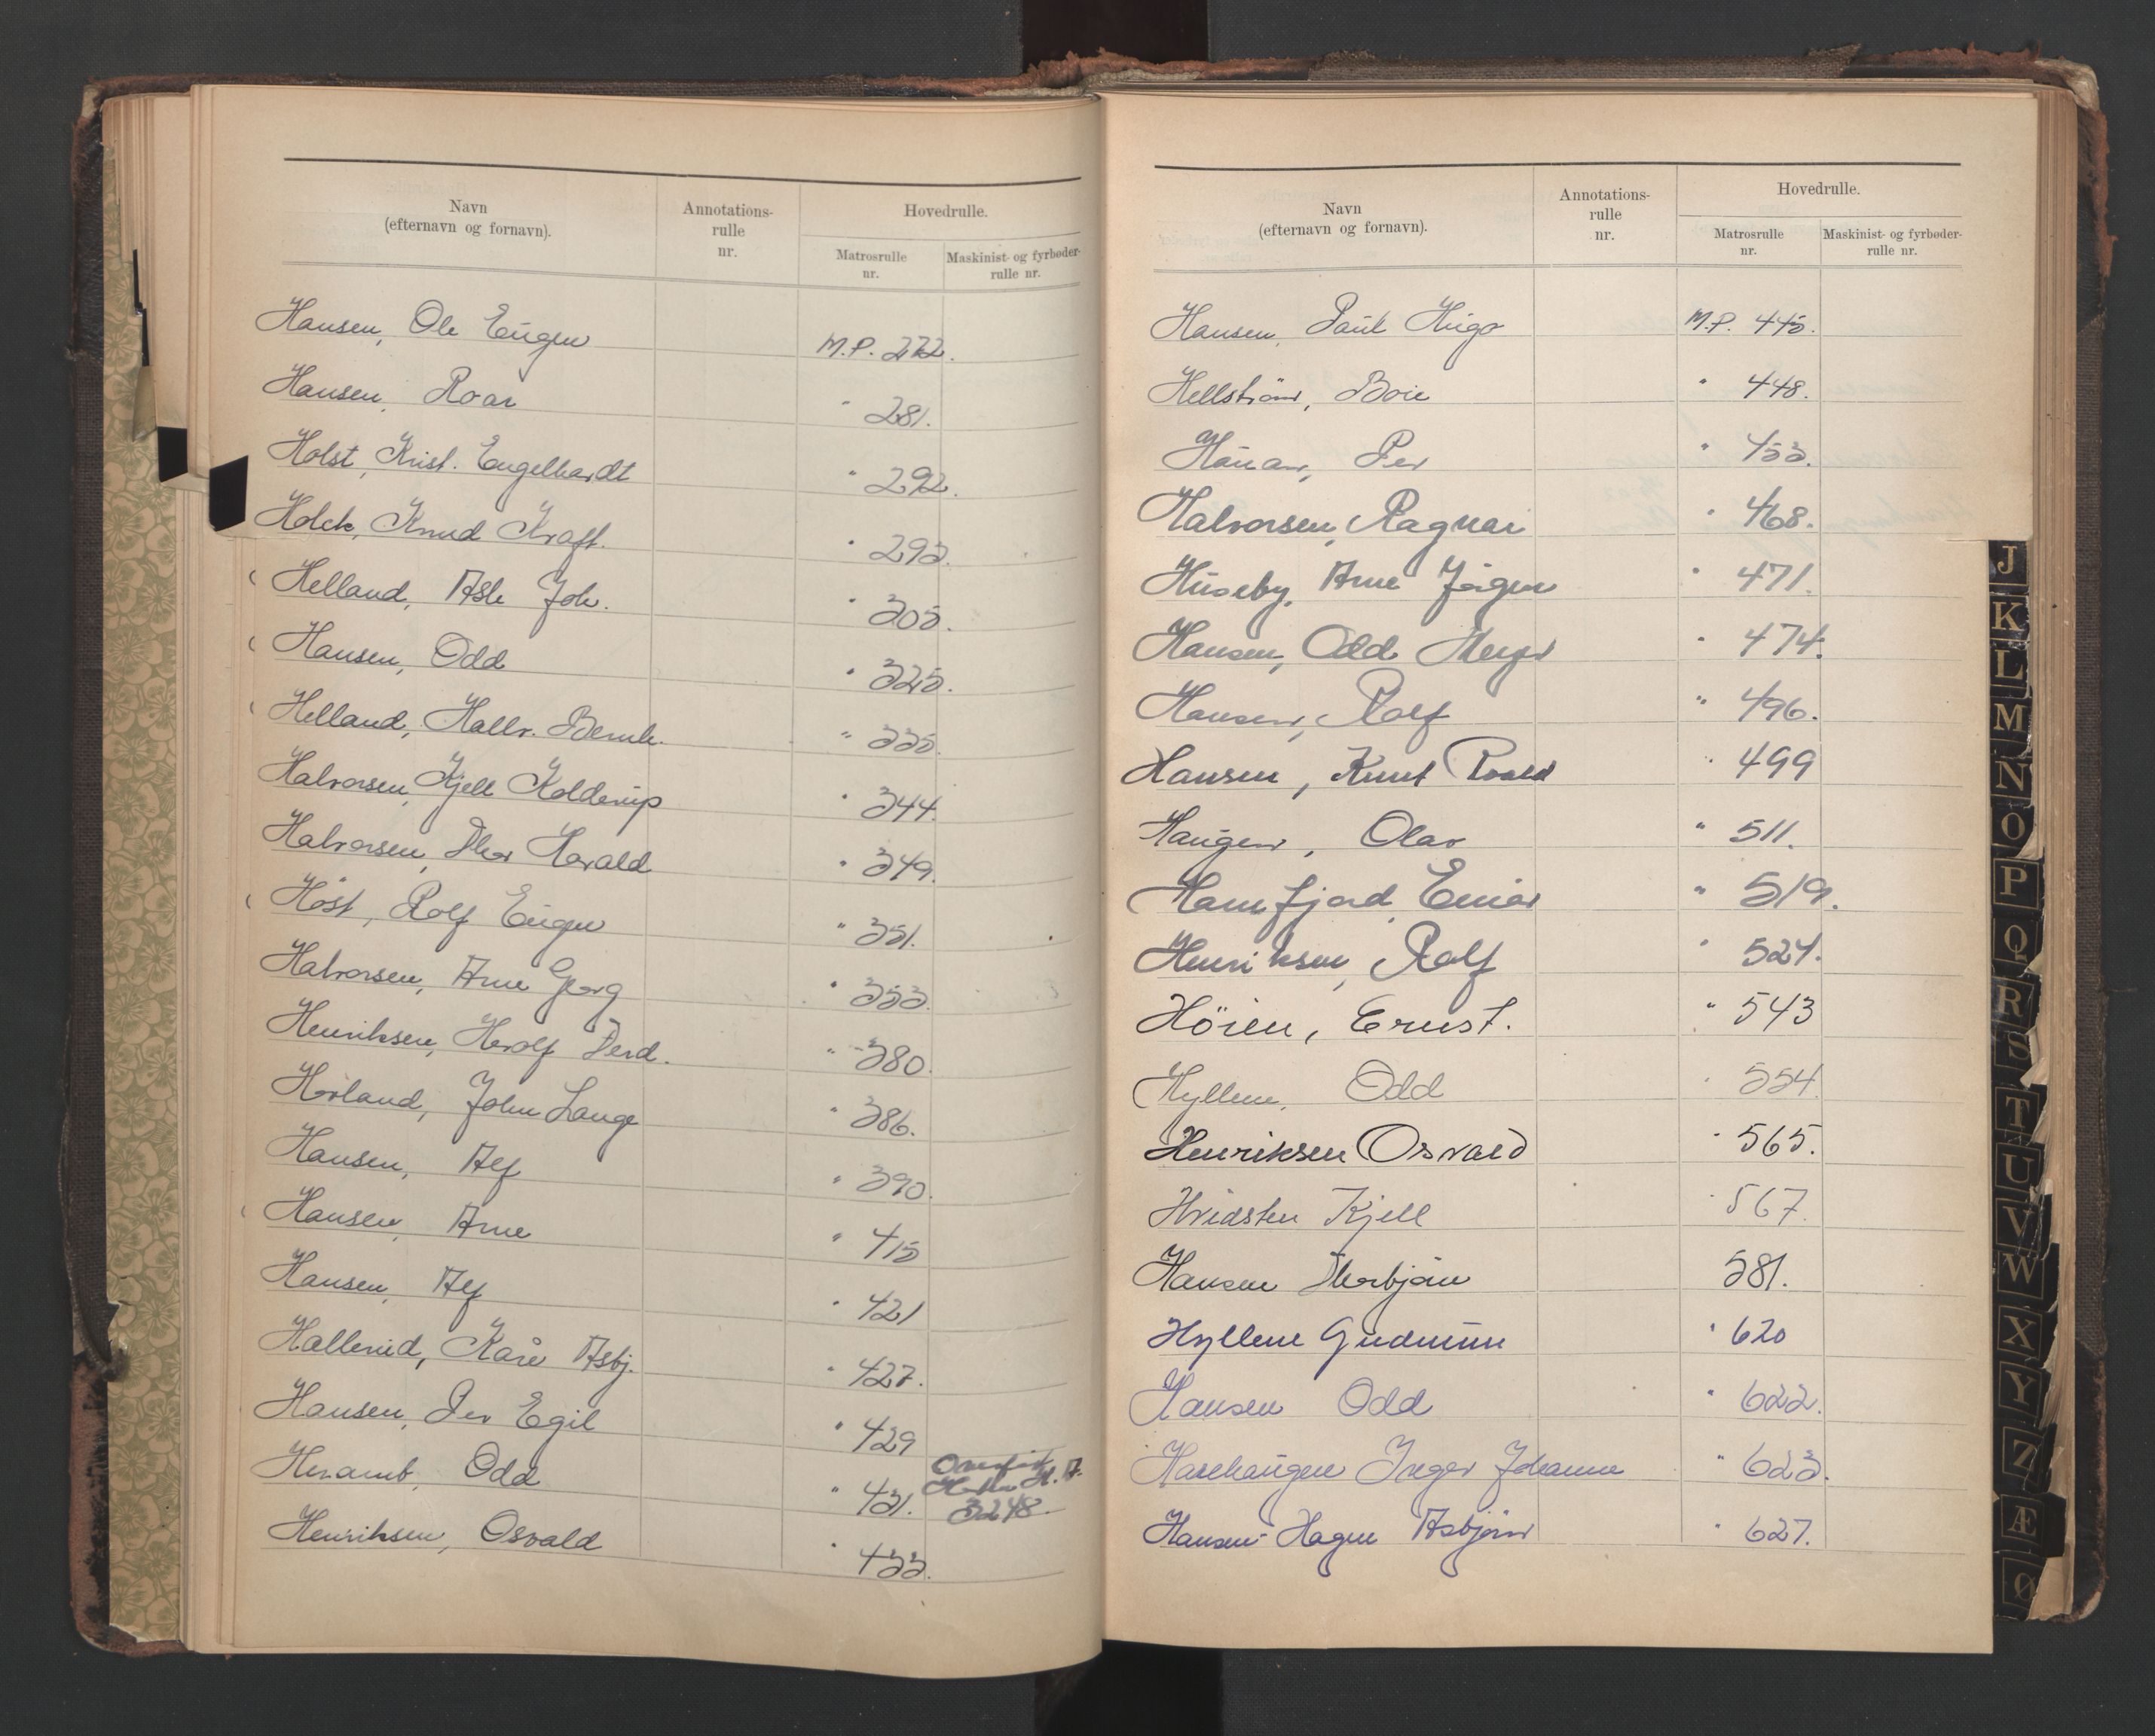 Navn
(efternavn og fornavn).
Annotations-
rulle
nr.
Hovedrulle.
Matrosrulle
nr.
Maskinist- og fyrbøder-
rulle nr.
Hansen, Ole Eugen M.P. 272.
Hansen, Roar " 281.
Holst, Krist. Engelhardt " 292.
Holck, Knud Kraft. " 293.
Helland, Asle Joh. " 305.
Hansen, Odd " 325.
Helland, Hallv. Bernh. " 335.
Halvorsen, Kjell Kolderup " 344.
Halvorsen, Thor Harald " 349.
Höst, Rolf Eugen " 351.
Halvorsen, Arne Georg " 353.
Henriksen, Herolf Ferd. " 380.
Horland, John Lange " 386.
Hansen, Alf " 390.
Hansen, Arne " 415
Hansen, Alf " 421
Hallerud, Kåre Asbj. " 427.
Hansen, Per Egil " 429
Heramb, Odd " 431. 3248
Henriksen, Osvald " 433.
Navn
(efternavn og fornavn).
Annotations-
rulle
nr.
Hovedrulle.
Matrosrulle
nr.
Maskinist- og fyrbøder-
rulle nr.
Hansen, Paul Hugo M.P. 445.
Hellström, Boie " 448.
Per " 453.
Halvorsen, Ragnar " 468.
Huseby, Arne Jörgen " 471.
Hansen, Odd " 474.
Hansen, Rolf " 496.
Hansen, Knut Roald " 499
Haugen, Olav " 511.
Hamfjord, Einar " 519.
Henriksen, Rolf " 524.
Höien, Ernst. " 543
Hyllene, Odd " 554.
Henriksen Osvald " 565.
Hvidsten Kjell " 567.
Hansen Thorbjörn 581.
Hyllene Gudmun " 620
Hansen Odd " 622.
Harehaugen Inger Johanne " 623.
Hansen-Hagen Asbjörn " 627.
J
K
L
M
N
O
P
Q
R
S
T
U
V
W
X
Y
Z
Æ
Ø